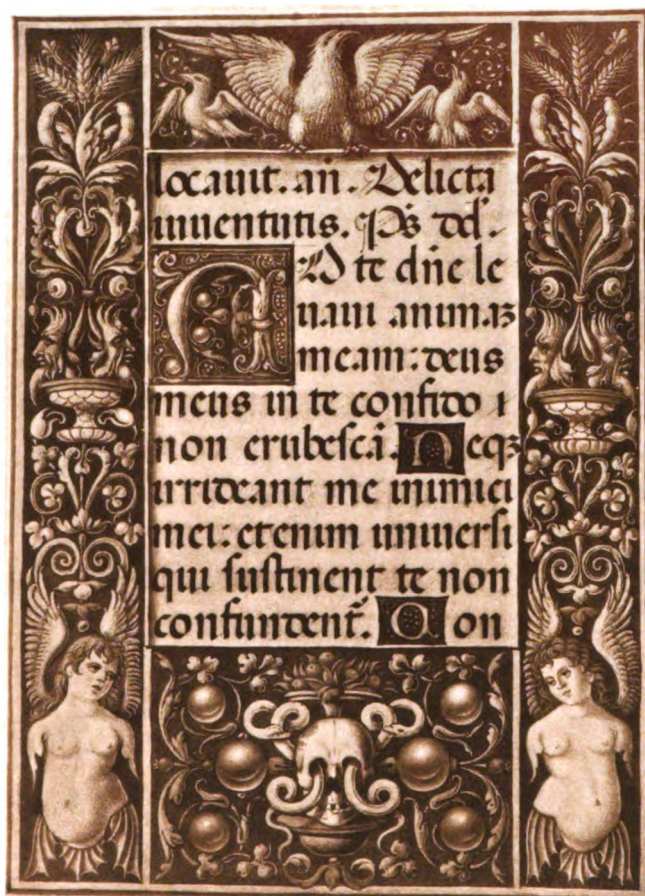 locauit. an̄. Delicta
iuuentutis. Ps̄ dd̕.
AD te dn̄e le
uaui animaꝫ
meam: deus
meus in te confido ⁊
non erubescā. Neqꝫ
irrideant me inimici
mei: etenim uniuersi
qui sustinent te non
confundent᷑. Con